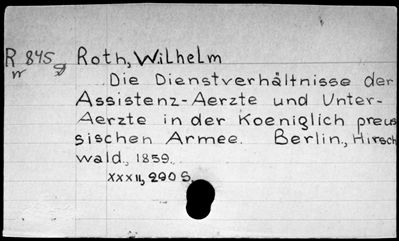 R 845 Roth, Wilhelm
Die Dienstverhältnisse der
Assistenz-Aerzte und Unter-
Aerzte in der Koeniglich preus
sischen Armee. Berlin, Hirsch
wald, 1859.
xxxii, 290 S.